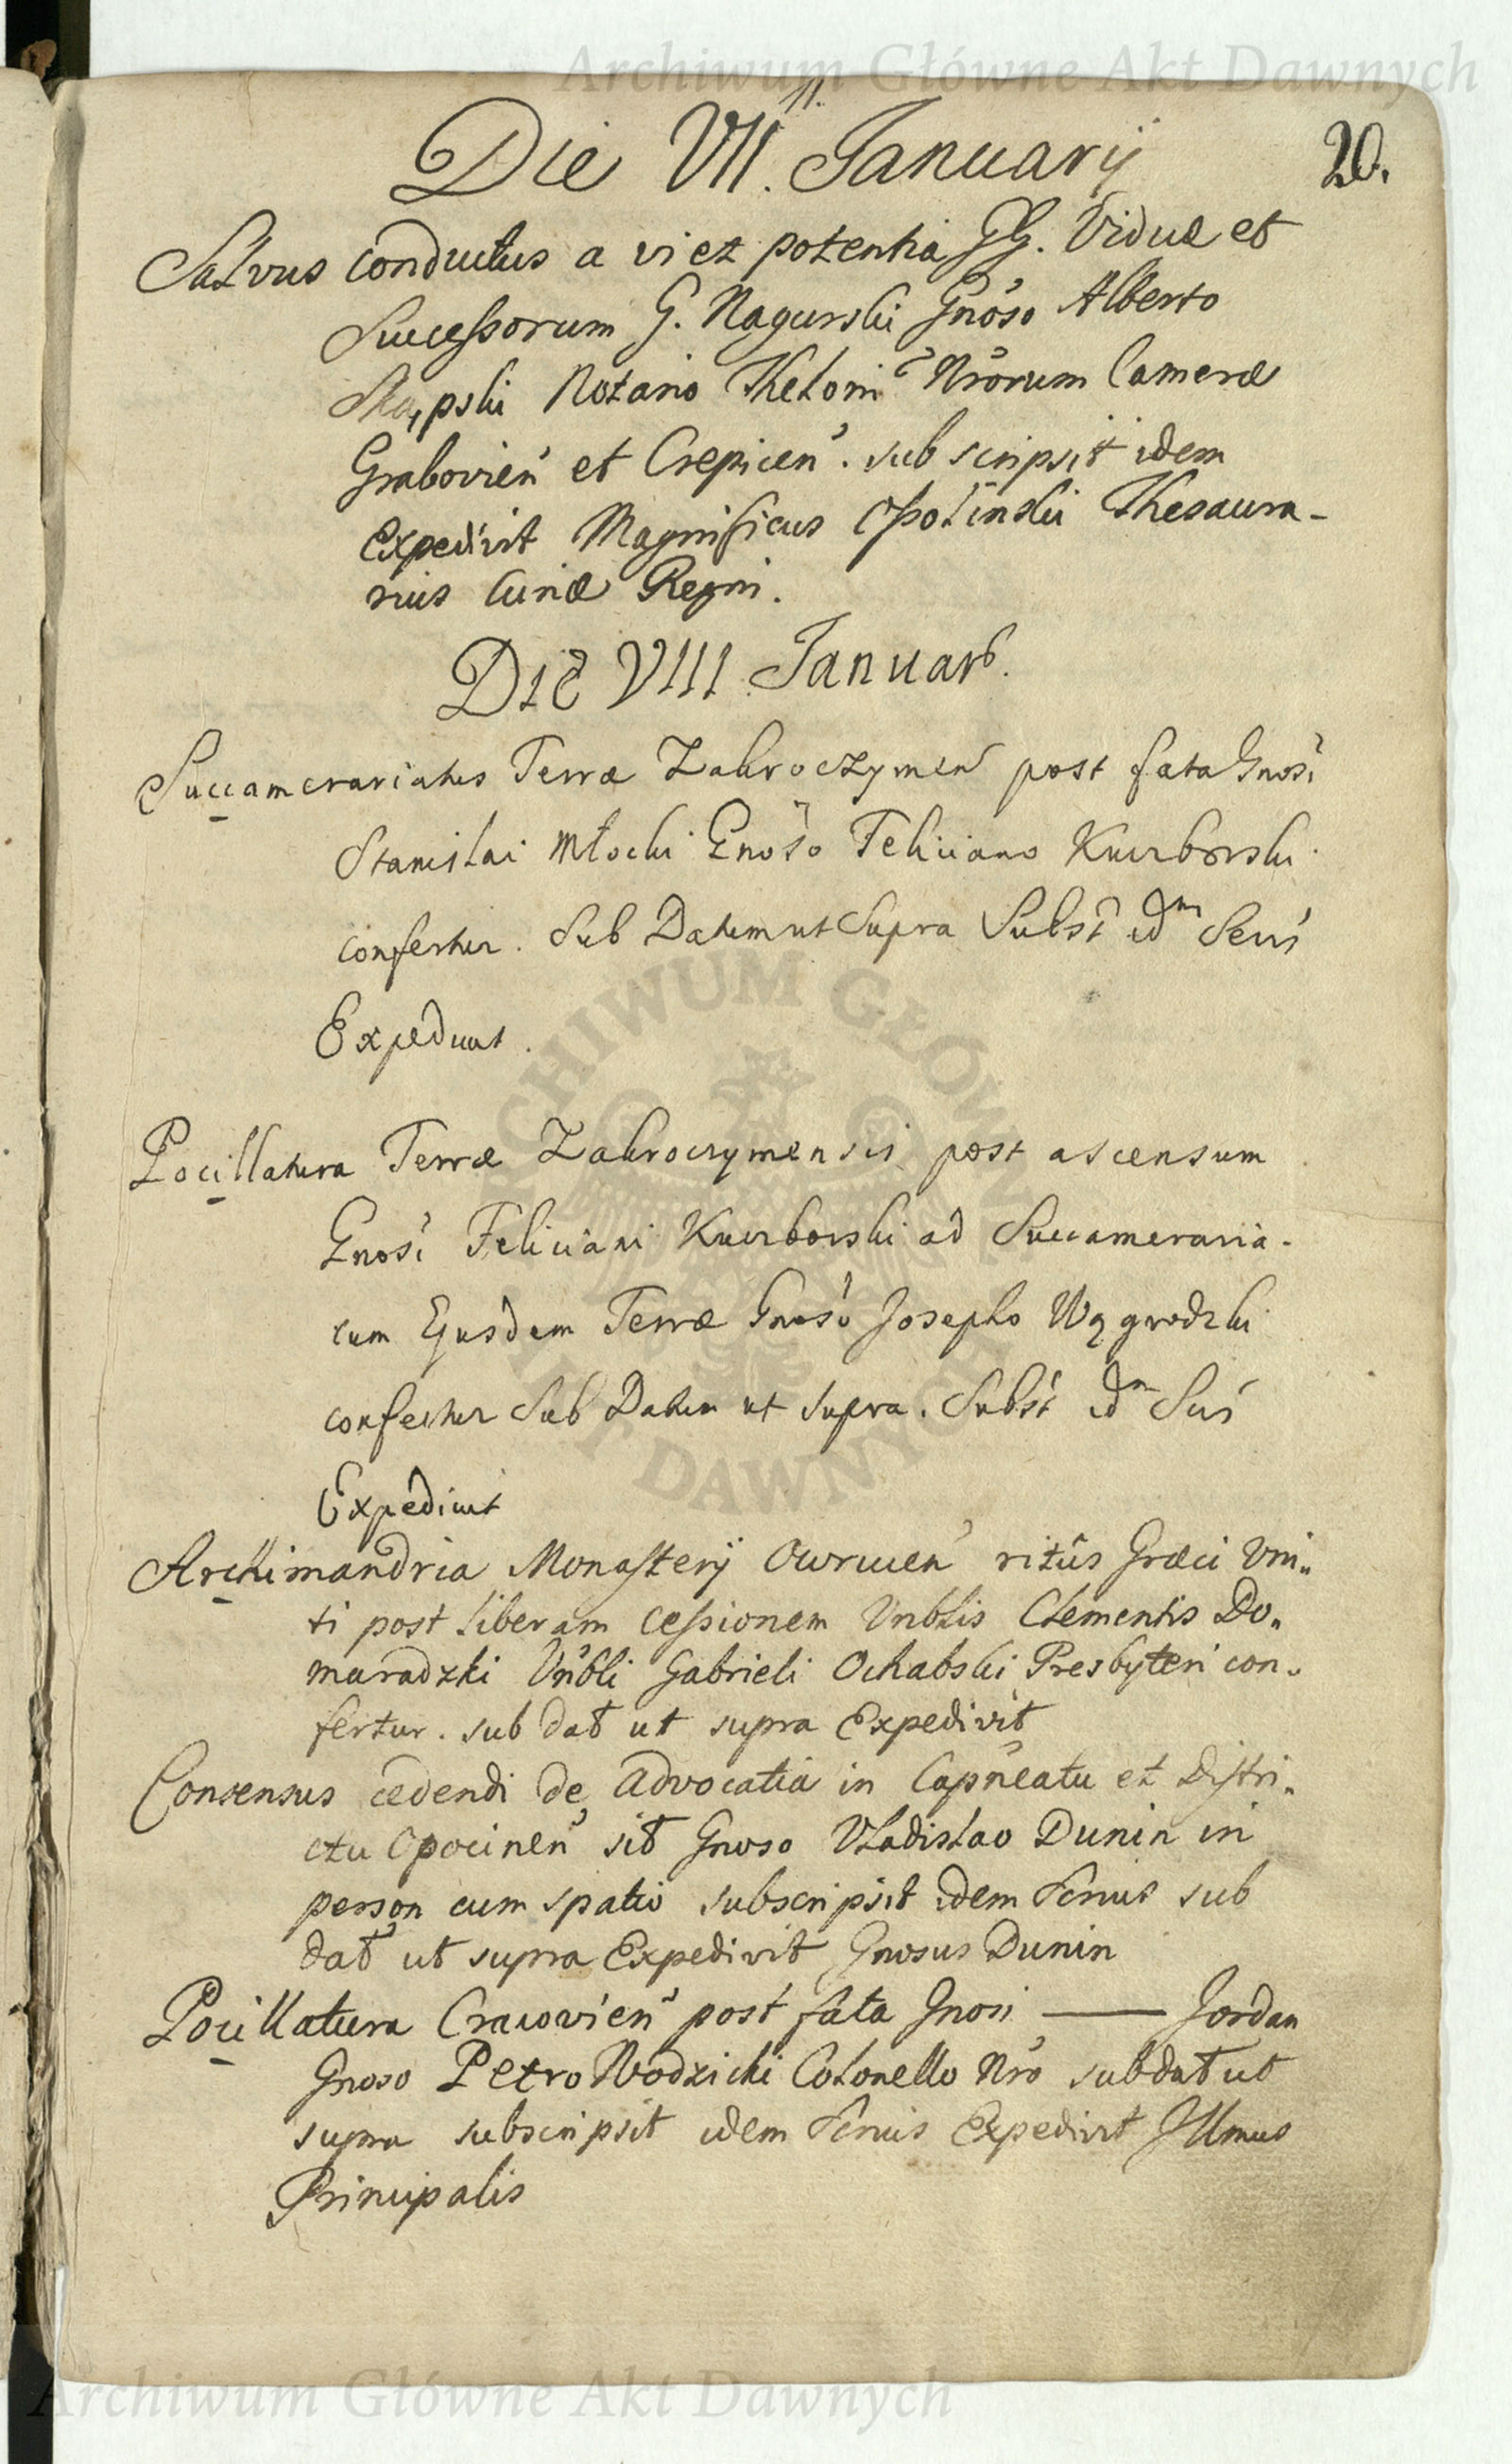 Archiwum Główne Akt Dawnych
11.
Die VII. Januarij
20.
Salvus conductus a vi et potentia GG. Viduæ et
Successorum G. Nagurski Gnoso Alberto
Notario Thelonii Nrorum Cameræ
Grabovien et Crepicen. subscripsit idem
Expedivit Magnificus Ossolinski Thesaura-
rius Curiæ Regni.
Die VIII Januar.
Succamerariatus Terræ Zakroczymen post fata Gnosi
Stanislai Młocki Gnoso Feliciano Kuczborski
confertur. Sub Datum ut Supra Subst idm Serus
Expediuit.
Pocillatura Terræ Zakroczymensis post ascensum
Gnosi Feliciani Kuczborski ad Succameraria-
tum Ejusdem Terræ Gnoso Josepho Węgrodzki
confertur Sub Datum ut supra. Subst idm Sus
Expediuit
Archimandria Monasterij Owrucen ritûs Græci Uni-
ti post liberam cessionem Vnblis Clementis Do-
maradzki Vnbli Gabrieli Ochabski Presbyteri con-
fertur. sub dat ut supra Expedivit
Consensus cedendi de advocatia in Capneatu et Distri-
ctu Opocinen sit Gnoso Vladislao Dunin in
person cum spatio subscripsit idem Sernus sub
dat ut supra Expedivit Gnosus Dunin
Pocillatura Cracovien post fata Gnosi — Jordan
Gnoso Petro Wodzicki Colonello Nro sub dat ut
supra subscripsit idem Sernus Expedivit Illmus
Principalis
ARCHIWUM GŁÓWNE
AKT DAWNYCH
Archiwum Główne Akt Dawnych